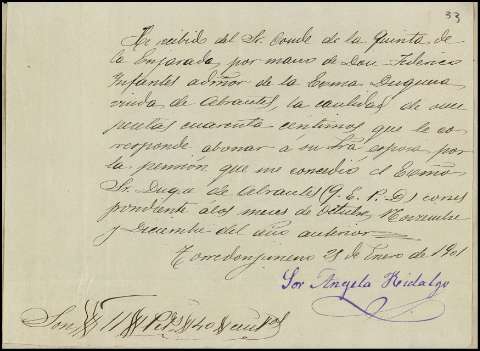 33
He recibido del Sr. Conde de la Quinta de
la Enjarada, por mano de Don Federico
Infantes admor de la Exma Duquesa
viuda de Abrantes, la cantidad de once
pesetas cuarenta centimos que le co-
rresponde abonar a su Sra esposa por
la pensión que me concedió el Excmo
Sr. Duque de Abrantes (q. E. P. D) corres
pondiente á los meses de Octubre, Noviembre
y Diciembre del año anterior
Torredonjimeno 28 de Enero de 1901
Sor Angela Hidalgo
Son 11 Ptas 40 centos